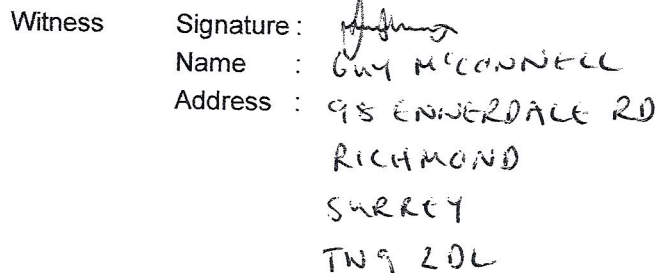 Witness Signature :
Name : GUY McCONNELL
Address : 98 ENNERDALE RD
RICHMOND
SURREY
TW9 2DL